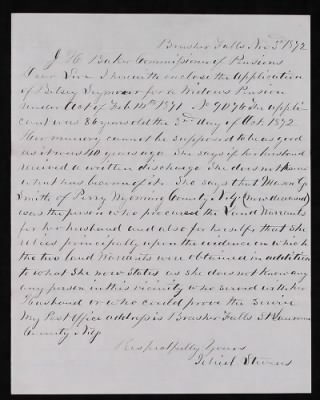 Brasher Falls Nov 5th 1872
J. H. Baker Commissioner of Pensions
Dear Sir I herewith enclose the Application
of Betsey Seymour for a Widows Pension
under Act of Feb. 14th 1871 No 9176 The appli
cant was 86 years old the 3rd day of Oct. 1872.
Her memory cannot be supposed to be as good
as it was 40 years ago. She says if her husband
received a written discharge She does not know
what has become of it. She says that Mason G.
Smith of Perry Wyoming County N.Y. (now deceased)
was the person who procured the Land Warrants
for her husband and also for herself that She
relies principally upon the evidence on which
the two land Warrants were obtained in addition
to what She now States as She does not know any
any person in this vicinity who served with her
Husband or who could prove the service
My Post Office address is Brasher Falls St Lawrence
County N.Y.
Respectfully Yours
Stevens